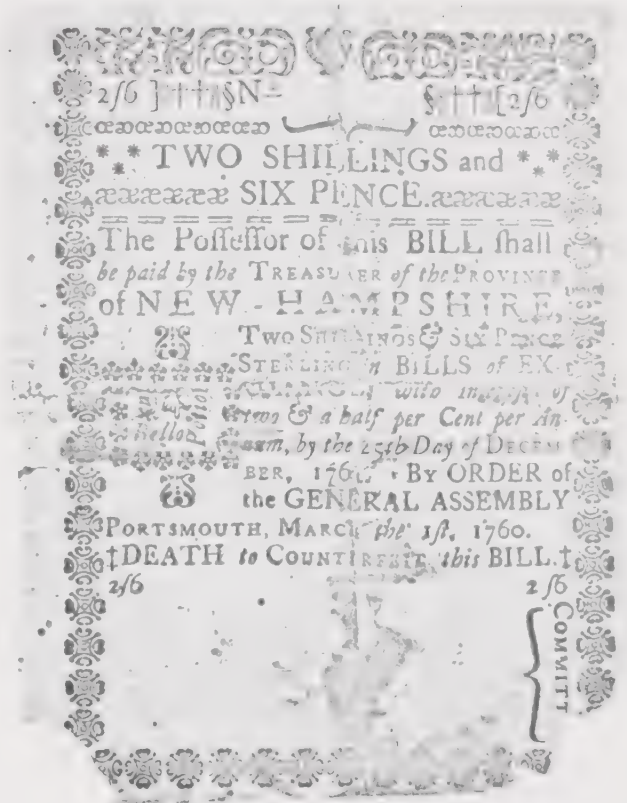 2/6 ]††§N= §††[2/6
TWO SHILLINGS and
SIX PENCE.
The Poſſeſſor of this BILL ſhall
be paid by the TREASURER of the PROVINCE
of NEW-HAMPSHIRE,
TWO SHILLINGS & SIX PENCE
STERLING in BILLS of EX-
CHANGE, with of
two & a half per Cent per An-
num, by the 25th Day of DECEM
BER, BY ORDER of
the GENERAL ASSEMBLY
PORTSMOUTH, MARCH the 1ſt, 1760.
†DEATH to COUNTERFEIT this BILL.†
2ſ6 2ſ6
COMMITT